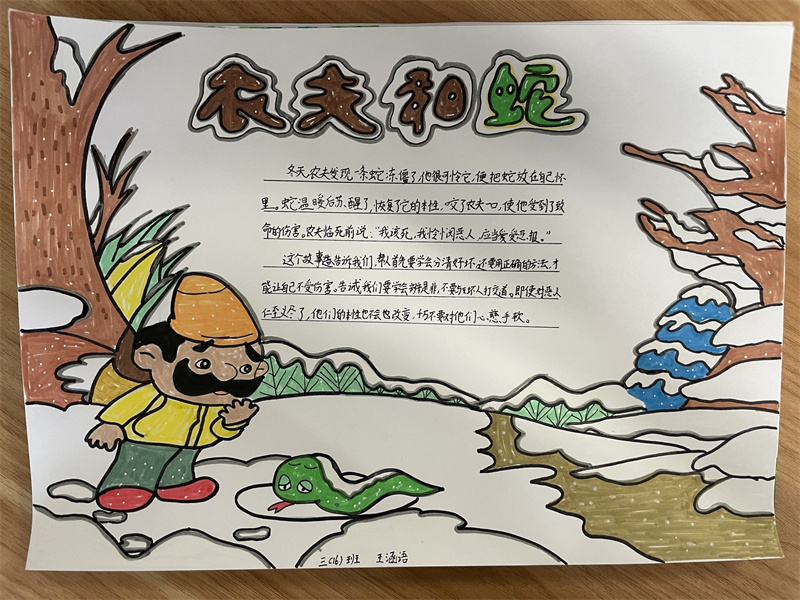 农夫和蛇
冬天,农夫发现一条蛇冻僵了,他很可怜它,便把蛇放在自己怀
里。蛇温暖后,苏醒了,恢复了它的本性,咬了农夫一口,使他受到了致
命的伤害。农夫临死前说:“我该死,我怜悯恶人,应当受恶报。”
这个故事告诉我们,帮人首先要学会分清好坏,还要用正确的方法,才
能让自己不受伤害。告诫我们要学会辨是非,不要与坏人打交道。即使对恶人
仁至义尽了,他们的本性也不会改变,切不要对他们心慈手软。
三(16)班 王涵语